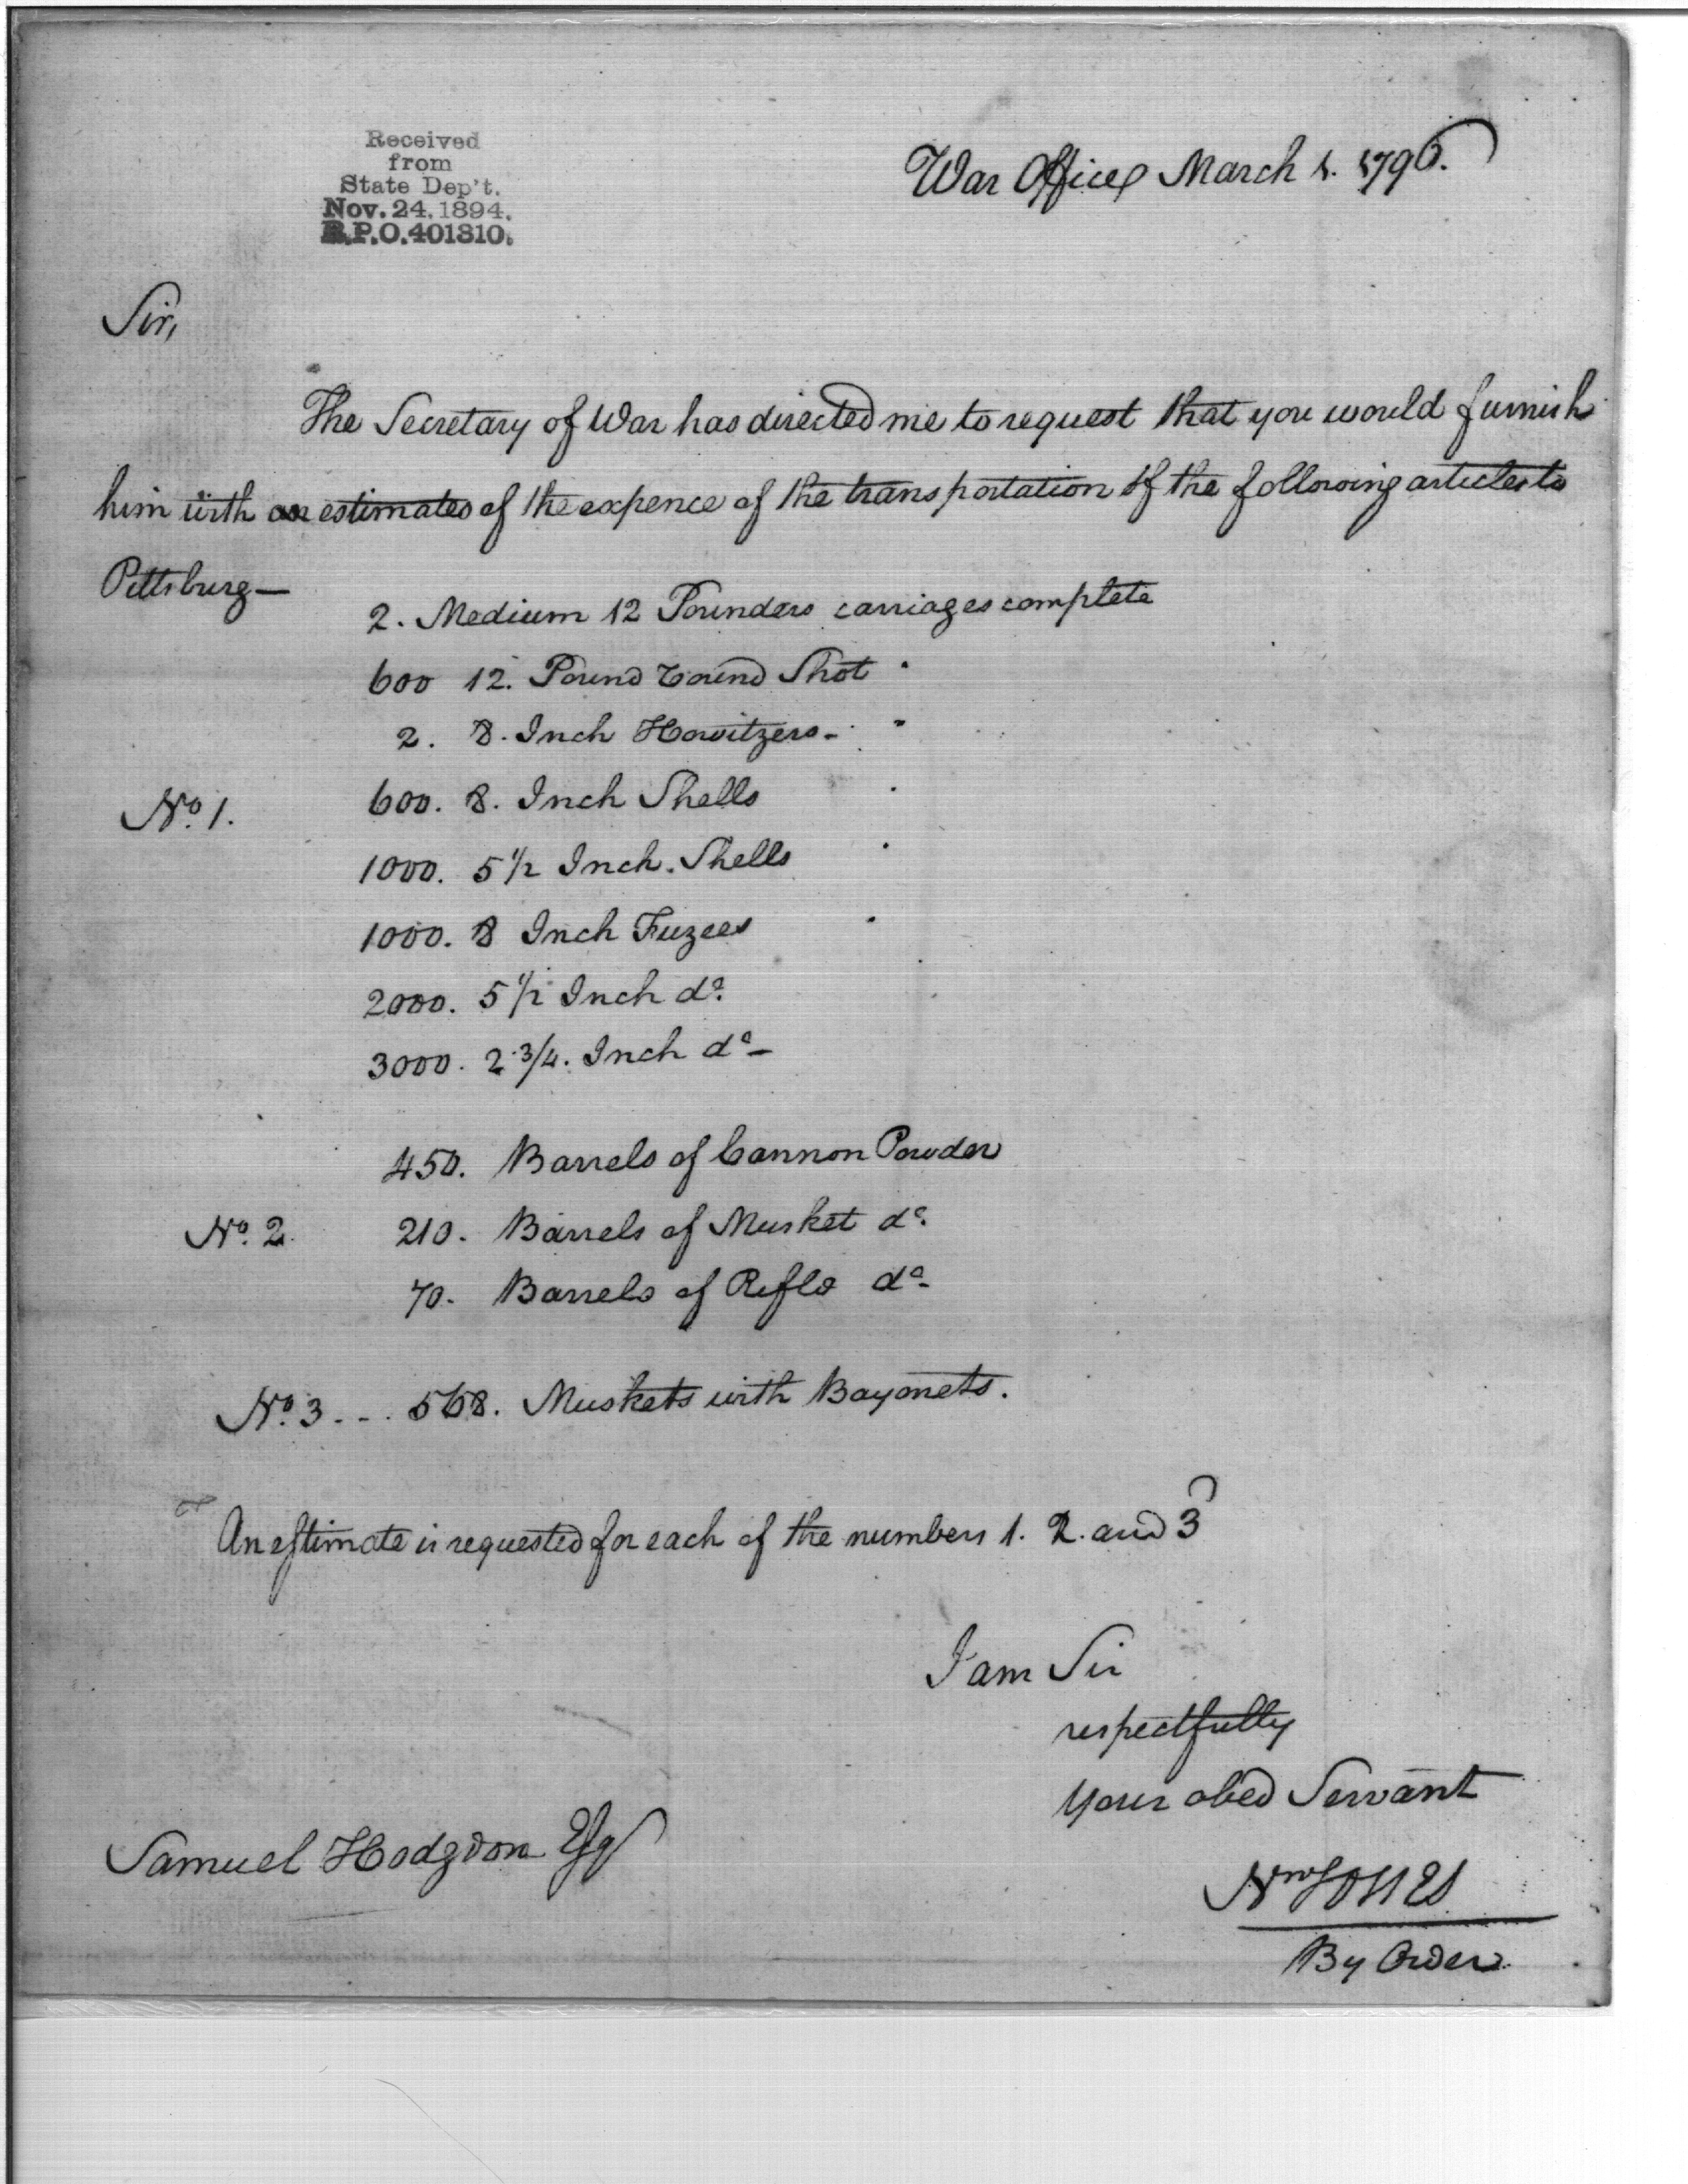 Received
from
State Dep't.
Nov. 24. 1894.
R.P.O. 401310.
War Office March 1. 1796.
Sir,
The Secretary of War has directed me to request that you would furnish
him with an estimate of the expence of the transportation of the following articles to
Pittsburg—
2. Medium 12 Pounders carriages complete
600 12. Pound round Shot "
2. 8. Inch Howitzers - "
No. 1. 600. 8. Inch Shells
1000. 5 1/2 Inch. Shells
1000. 8 Inch Fuzees
2000. 5 1/2 Inch do.
3000. 2 3/4. Inch do -
450. Barrels of Cannon Powder
No. 2. 210. Barrels of Musket do.
70. Barrels of Rifle do -
No. 3 - - . 568. Muskets with Bayonets.
An estimate is requested for each of the numbers 1. 2. and 3
I am Sir
respectfully
Your obed Servant
Samuel Hodgdon Esq
Nr Jones
By Order